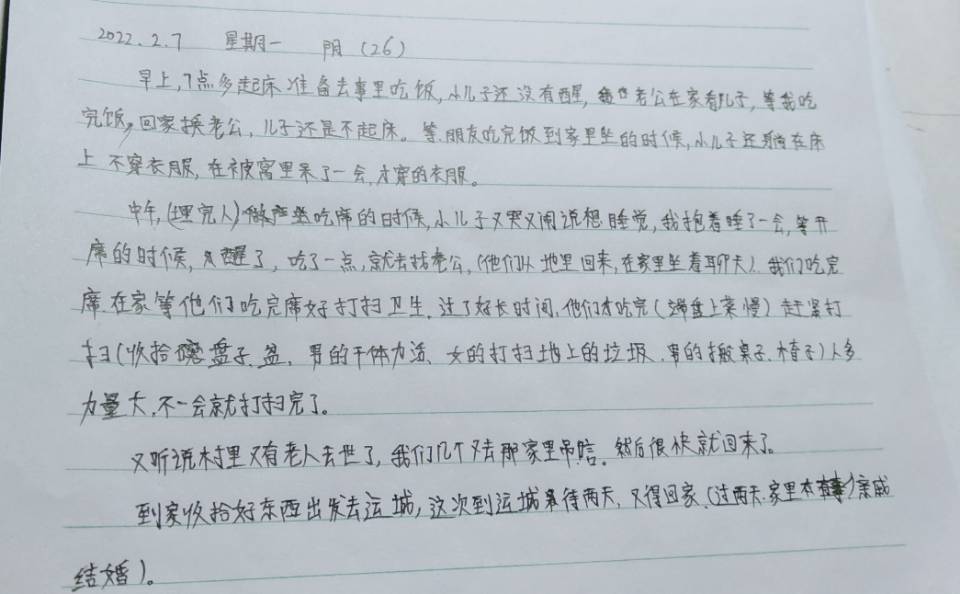 2022.2.7 星期一 阴(26)
早上,7点多起床准备去事里吃饭,小儿子还没有醒,老公在家看儿子,等我吃
完饭,回家换老公,儿子还是不起床。等朋友吃完饭到家里坐的时候,小儿子还躺在床
上不穿衣服,在被窝里呆了一会,才穿的衣服。
中午,(埋完人)坐吃席的时候,小儿子又哭又闹说想睡觉,我抱着睡了一会,等开
席的时候,又醒了,吃了一点,就去找老公,(他们从地里回来,在家里坐着聊天)我们吃完
席.在家等他们吃完席好打扫卫生.过了好长时间,他们才吃完(端盘上菜慢)赶紧打
扫(收拾碗盘子.盆.男的干体力活、女的打扫地上的垃圾.男的搬桌子.椅子)人多
力量大,不一会就打扫完了。
又听说村里又有老人去世了,我们几个又去那家里吊唁.然后很快就回来了。
到家收拾好东西出发去运城,这次到运城待两天,又得回家.(过两天.家里本有事)亲戚
结婚)。